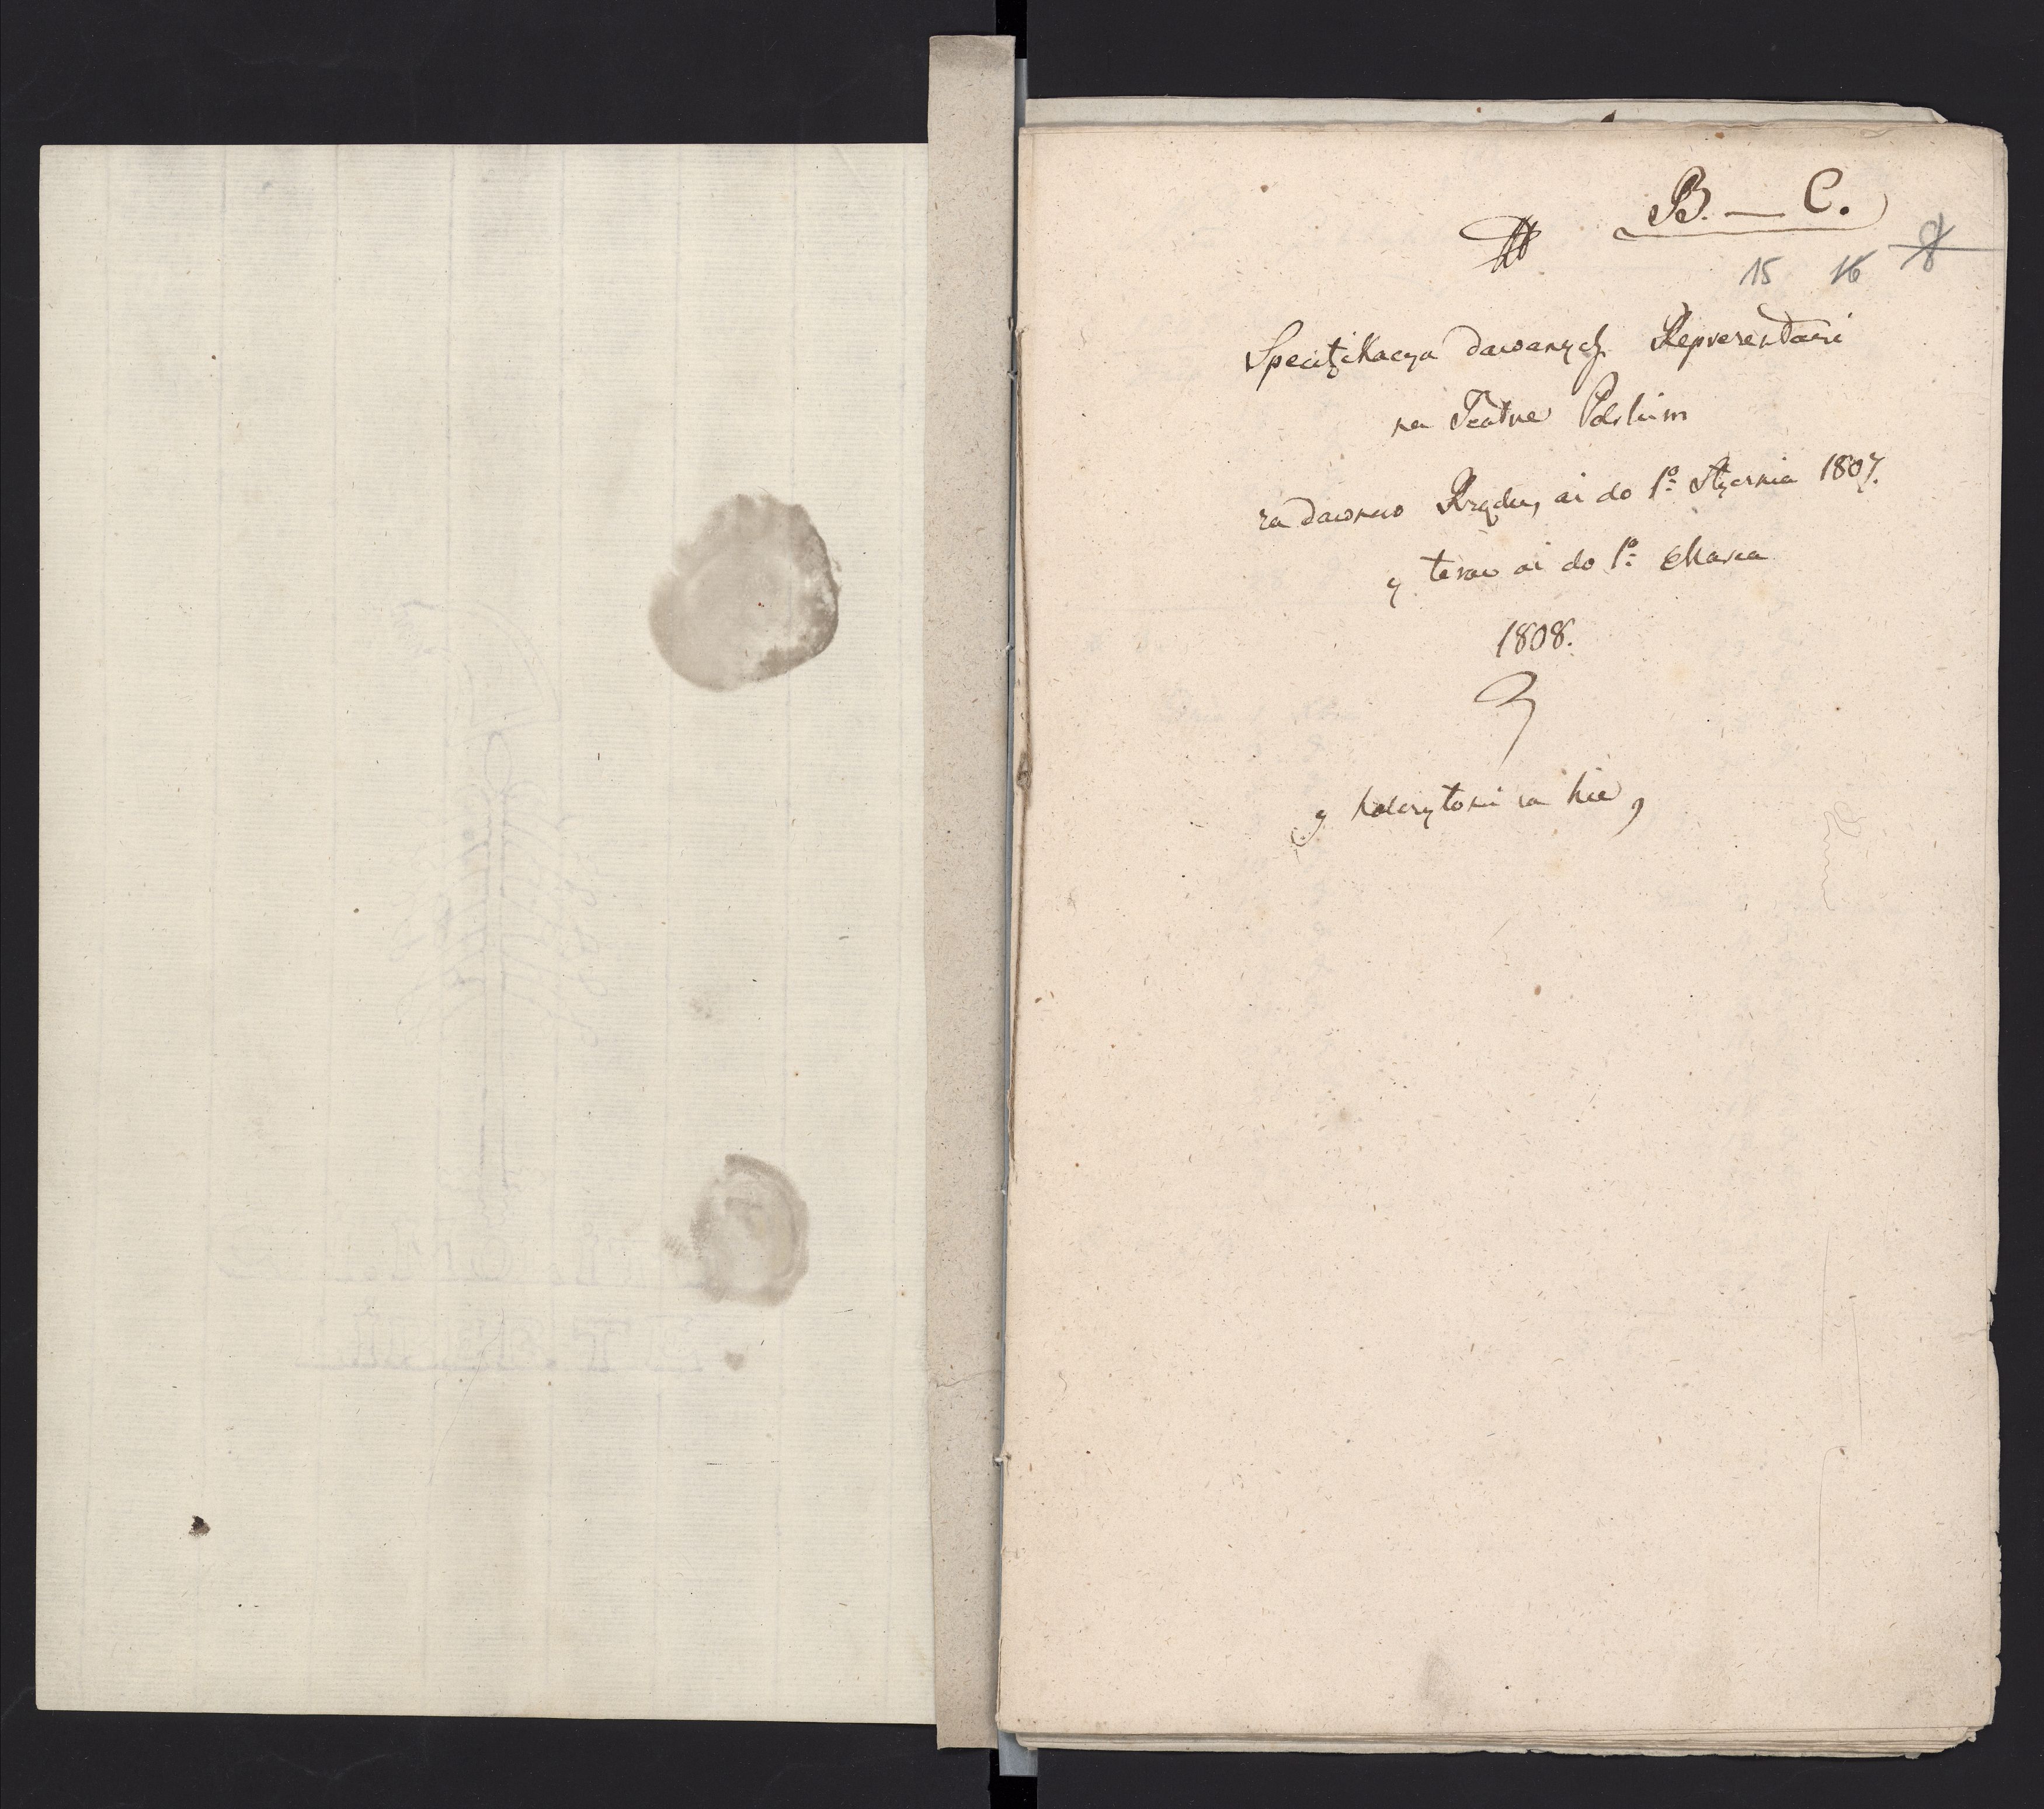 B. — C.
15 16 8
Specifikacya dawanych Reprezentacii
na Teatrze Polskim
za dawnego Rządu, aż do 1º Stycznia 1807.
y teraz aż do 1º Marca
1808.
y należytosci za nie